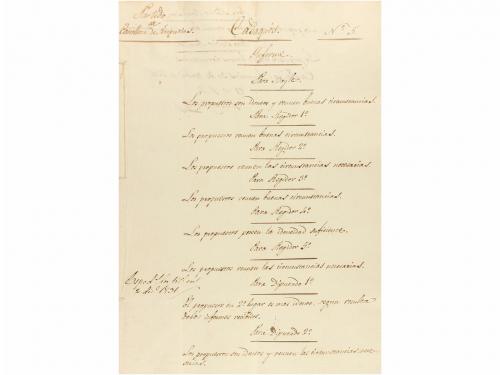 Partido
de
Cadaqués. Nº 5
Informe
Para Bayle.
Los propuestos son idoneos y reunen buenas circunstancias.
Para Regidor 1º
Los propuestos reunen buenas circunstancias.
Para Regidor 2º
Los propuestos reunen las circunstancias necesarias.
Para Regidor 3º
Los propuestos reunen buenas circunstancias.
Para Regidor 4º
Los propuestos poseen la idoneidad suficiente.
Para Regidor 5º
Los propuestos reunen las circunstancias necesarias.
Para Diputado 1º
El propuesto en 2º lugar es mas idoneo, segun resulta
de los informes recibidos.
Para Diputado 2º
Los propuestos son idoneos y reunen las circunstancias nece-
sarias.